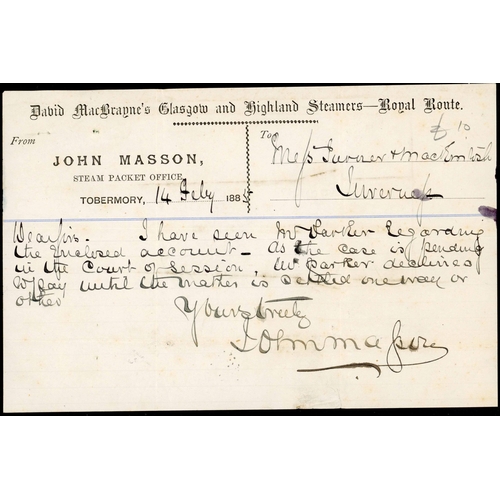 David MacBrayne's Glasgow and Highland Steamers—Royal Route.
From
To
JOHN MASSON,
STEAM PACKET OFFICE,
TOBERMORY, 14 July 188
Mess Turner & MacKintosh
Inverness
Dear Sir. I have seen Mr Parker Regarding
the Enclosed account - As the case is pending
in the Court of Session, Mr Parker declines
to pay until the matter is settled one way or
other
Yours truly
John Masson